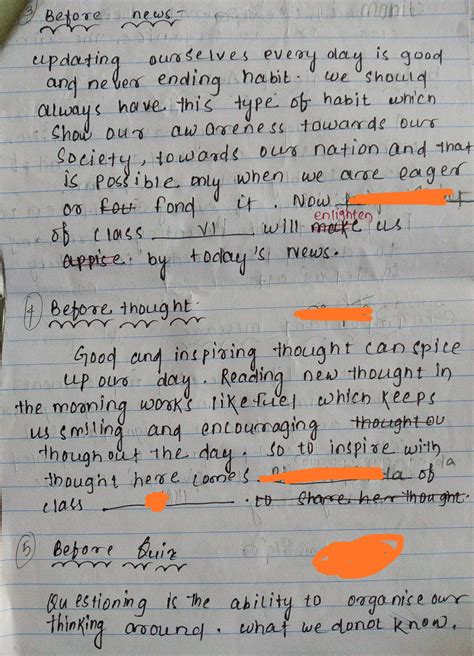 ③ Before news-
updating ourselves every day is good
and never ending habit. we should
always have this type of habit which
Show our awareness towards our
Society, towards our nation and that
is possible only when we are eager
or for fond it. Now
enlighten
of class VI will make us
appise by today's News.
④ Before thought.
Good and inspiring thought can spice
up our day. Reading new thought in
the morning works like fuel which keeps
us smiling and encouraging thought ou
thoughout the day. so to inspire with
thought here comes da of
class . to share her thought.
⑤ Before Quiz
Questioning is the ability to organise our
thinking around. what we donot know.